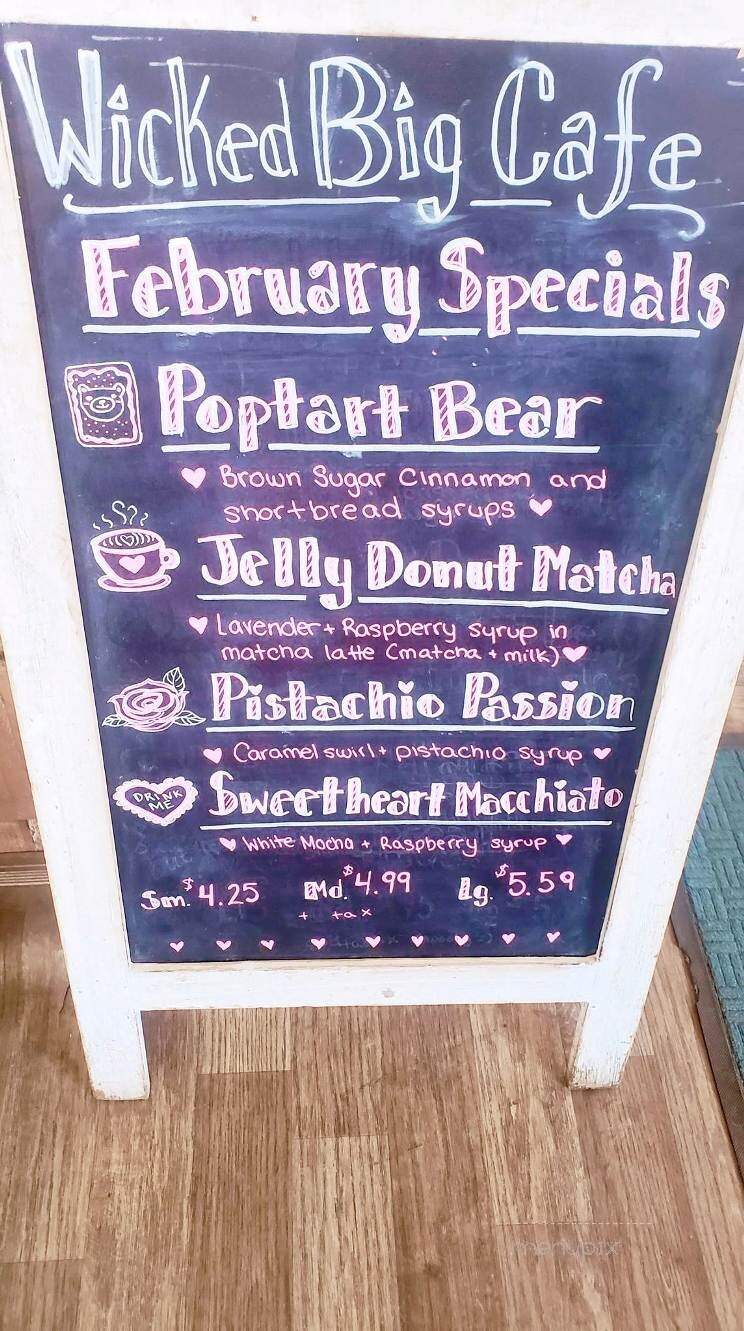 Wicked Big Cafe
February Specials
Poptart Bear
Brown Sugar Cinnamon and
shortbread syrups
Jelly Donut Matcha
Lavender + Raspberry syrup in
matcha latte (matcha + milk)
Pistachio Passion
Caramel swirl + pistachio syrup
DRINK
ME
Sweetheart Macchiato
White Mocha + Raspberry syrup
Sm. $4.25 Md. $4.99 Lg. $5.59
+ tax
menupix